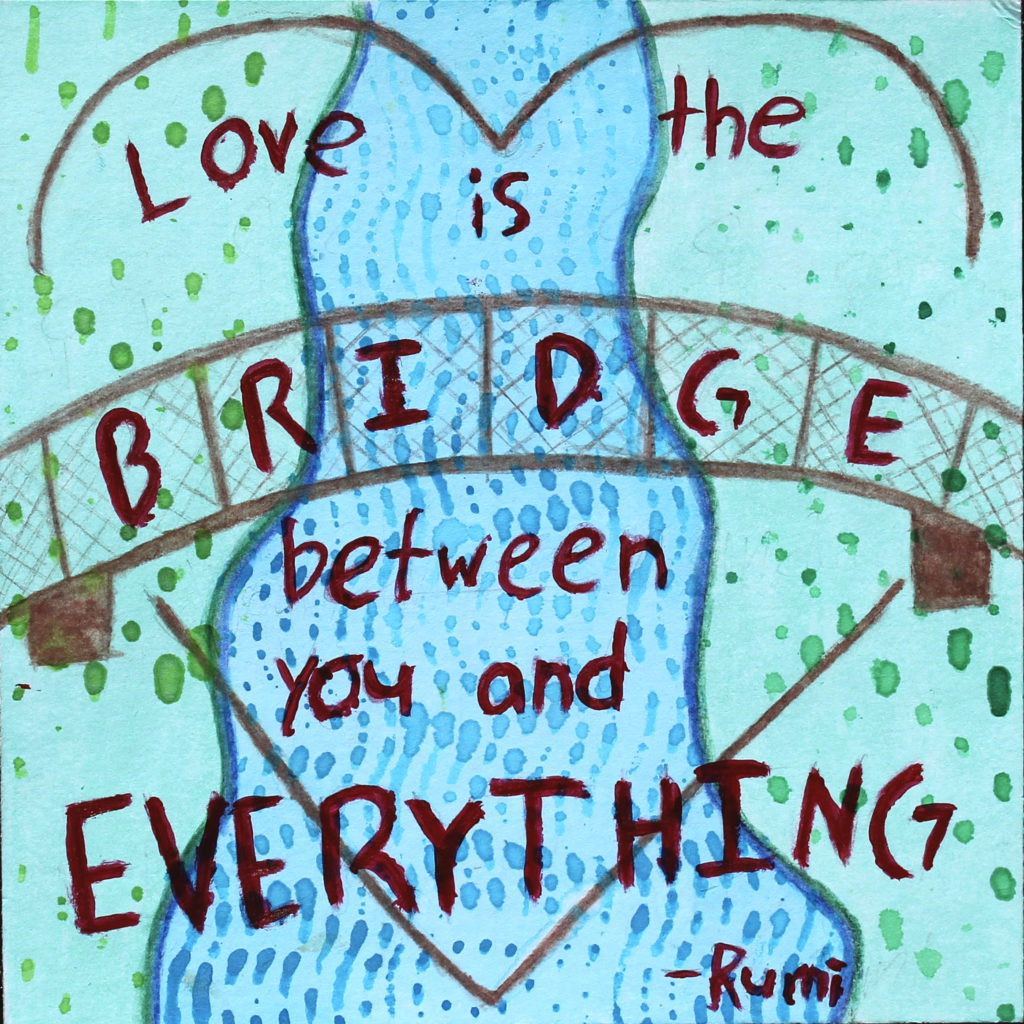 Love is the
BRIDGE
between
you and
EVERYTHING
-Rumi